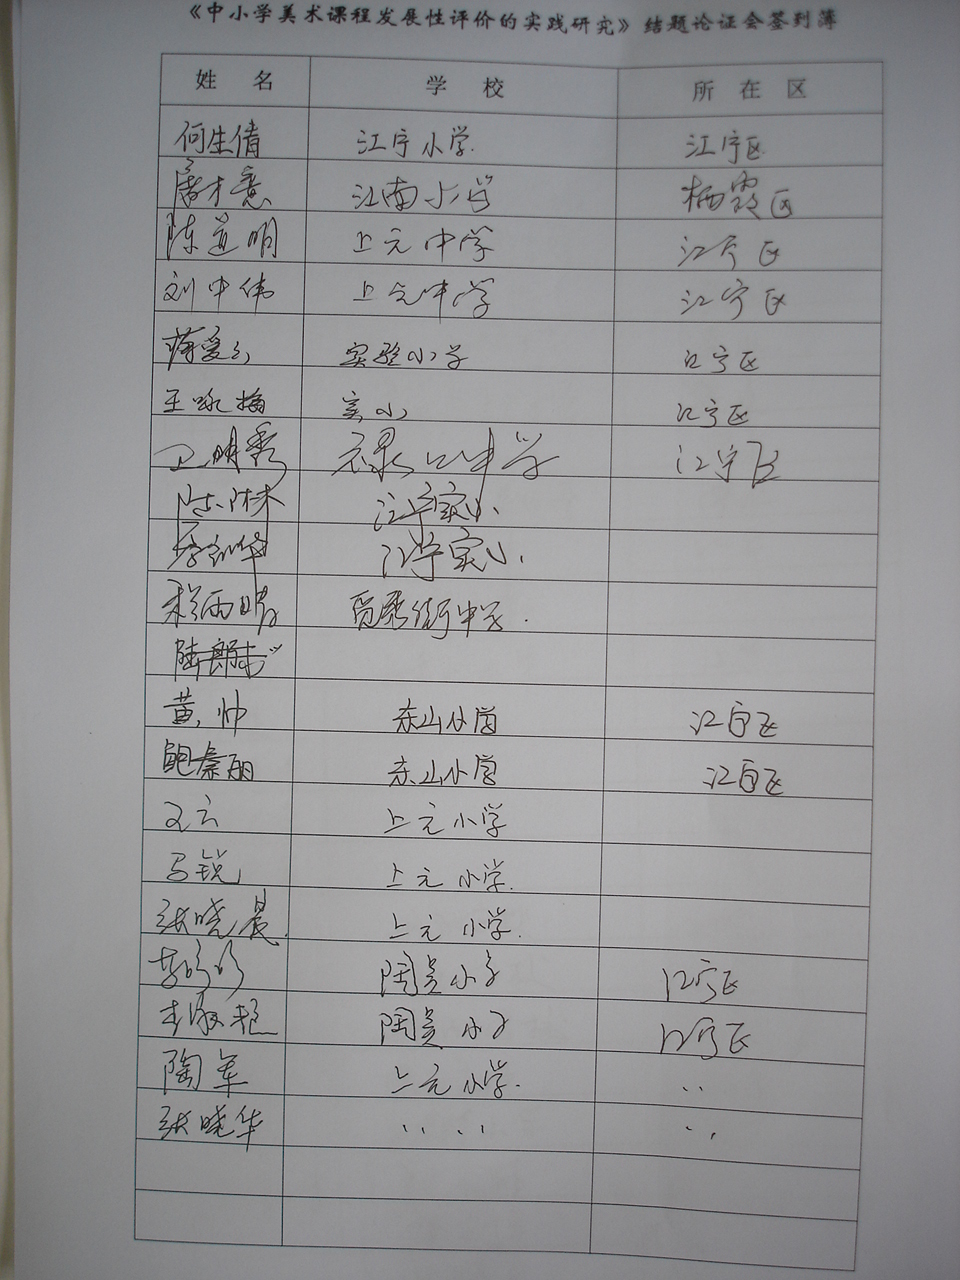 《中小学美术课程发展性评价的实践研究》结题论证会签到簿
姓 名 学 校 所 在 区
何生倩 江宁小学. 江宁区
唐才意 江南小学 栖霞区
陈道明 上元中学 江宁区
刘中伟 上元中学 江宁区
蒋爱 实验小学 江宁区
王咏梅 实小 江宁区
卫明秀 禄口中学 江宁区
陈 江宁实小.
江宁实小.
秣 街中学.
陆
黄帅 东山小学 江宁区
鲍秦丽 东山小学 江宁区
文云 上元小学
马锐 上元小学.
张晓晨. 上元小学.
陶吴小学 江宁区
李 艳 陶吴小学 江宁区
陶军 上元小学. 、、
张晓华 、、 、、 、、